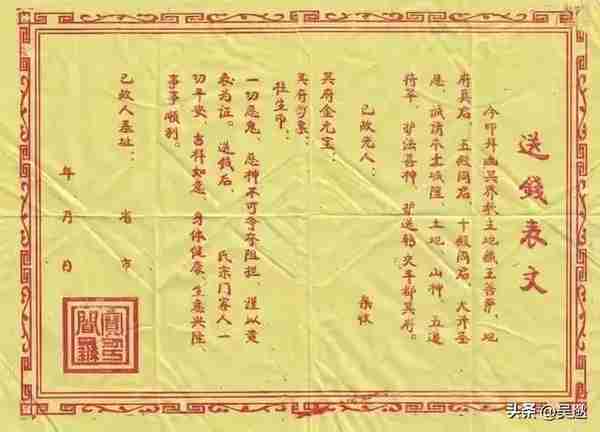 送錢表文
今叩拜幽冥界教主地藏王菩萨，地
府真君，五殿阎君，十殿阎君，大开圣
恩，诚请本主城隍，土地，山神，五道
将军，护法善神，护送转交丰都冥府。
已故先人： 亲收
冥府金元宝：
冥府钞票：
往生币：
一切恶鬼、恶神不可争夺阻拦，谨以黄
表为证。送钱后， 氏宗门家人一
切平安，吉祥如意，身体健康，生意兴隆，
事事顺利。
已故人墓址： 省 市
年 月 日
头条 @吴